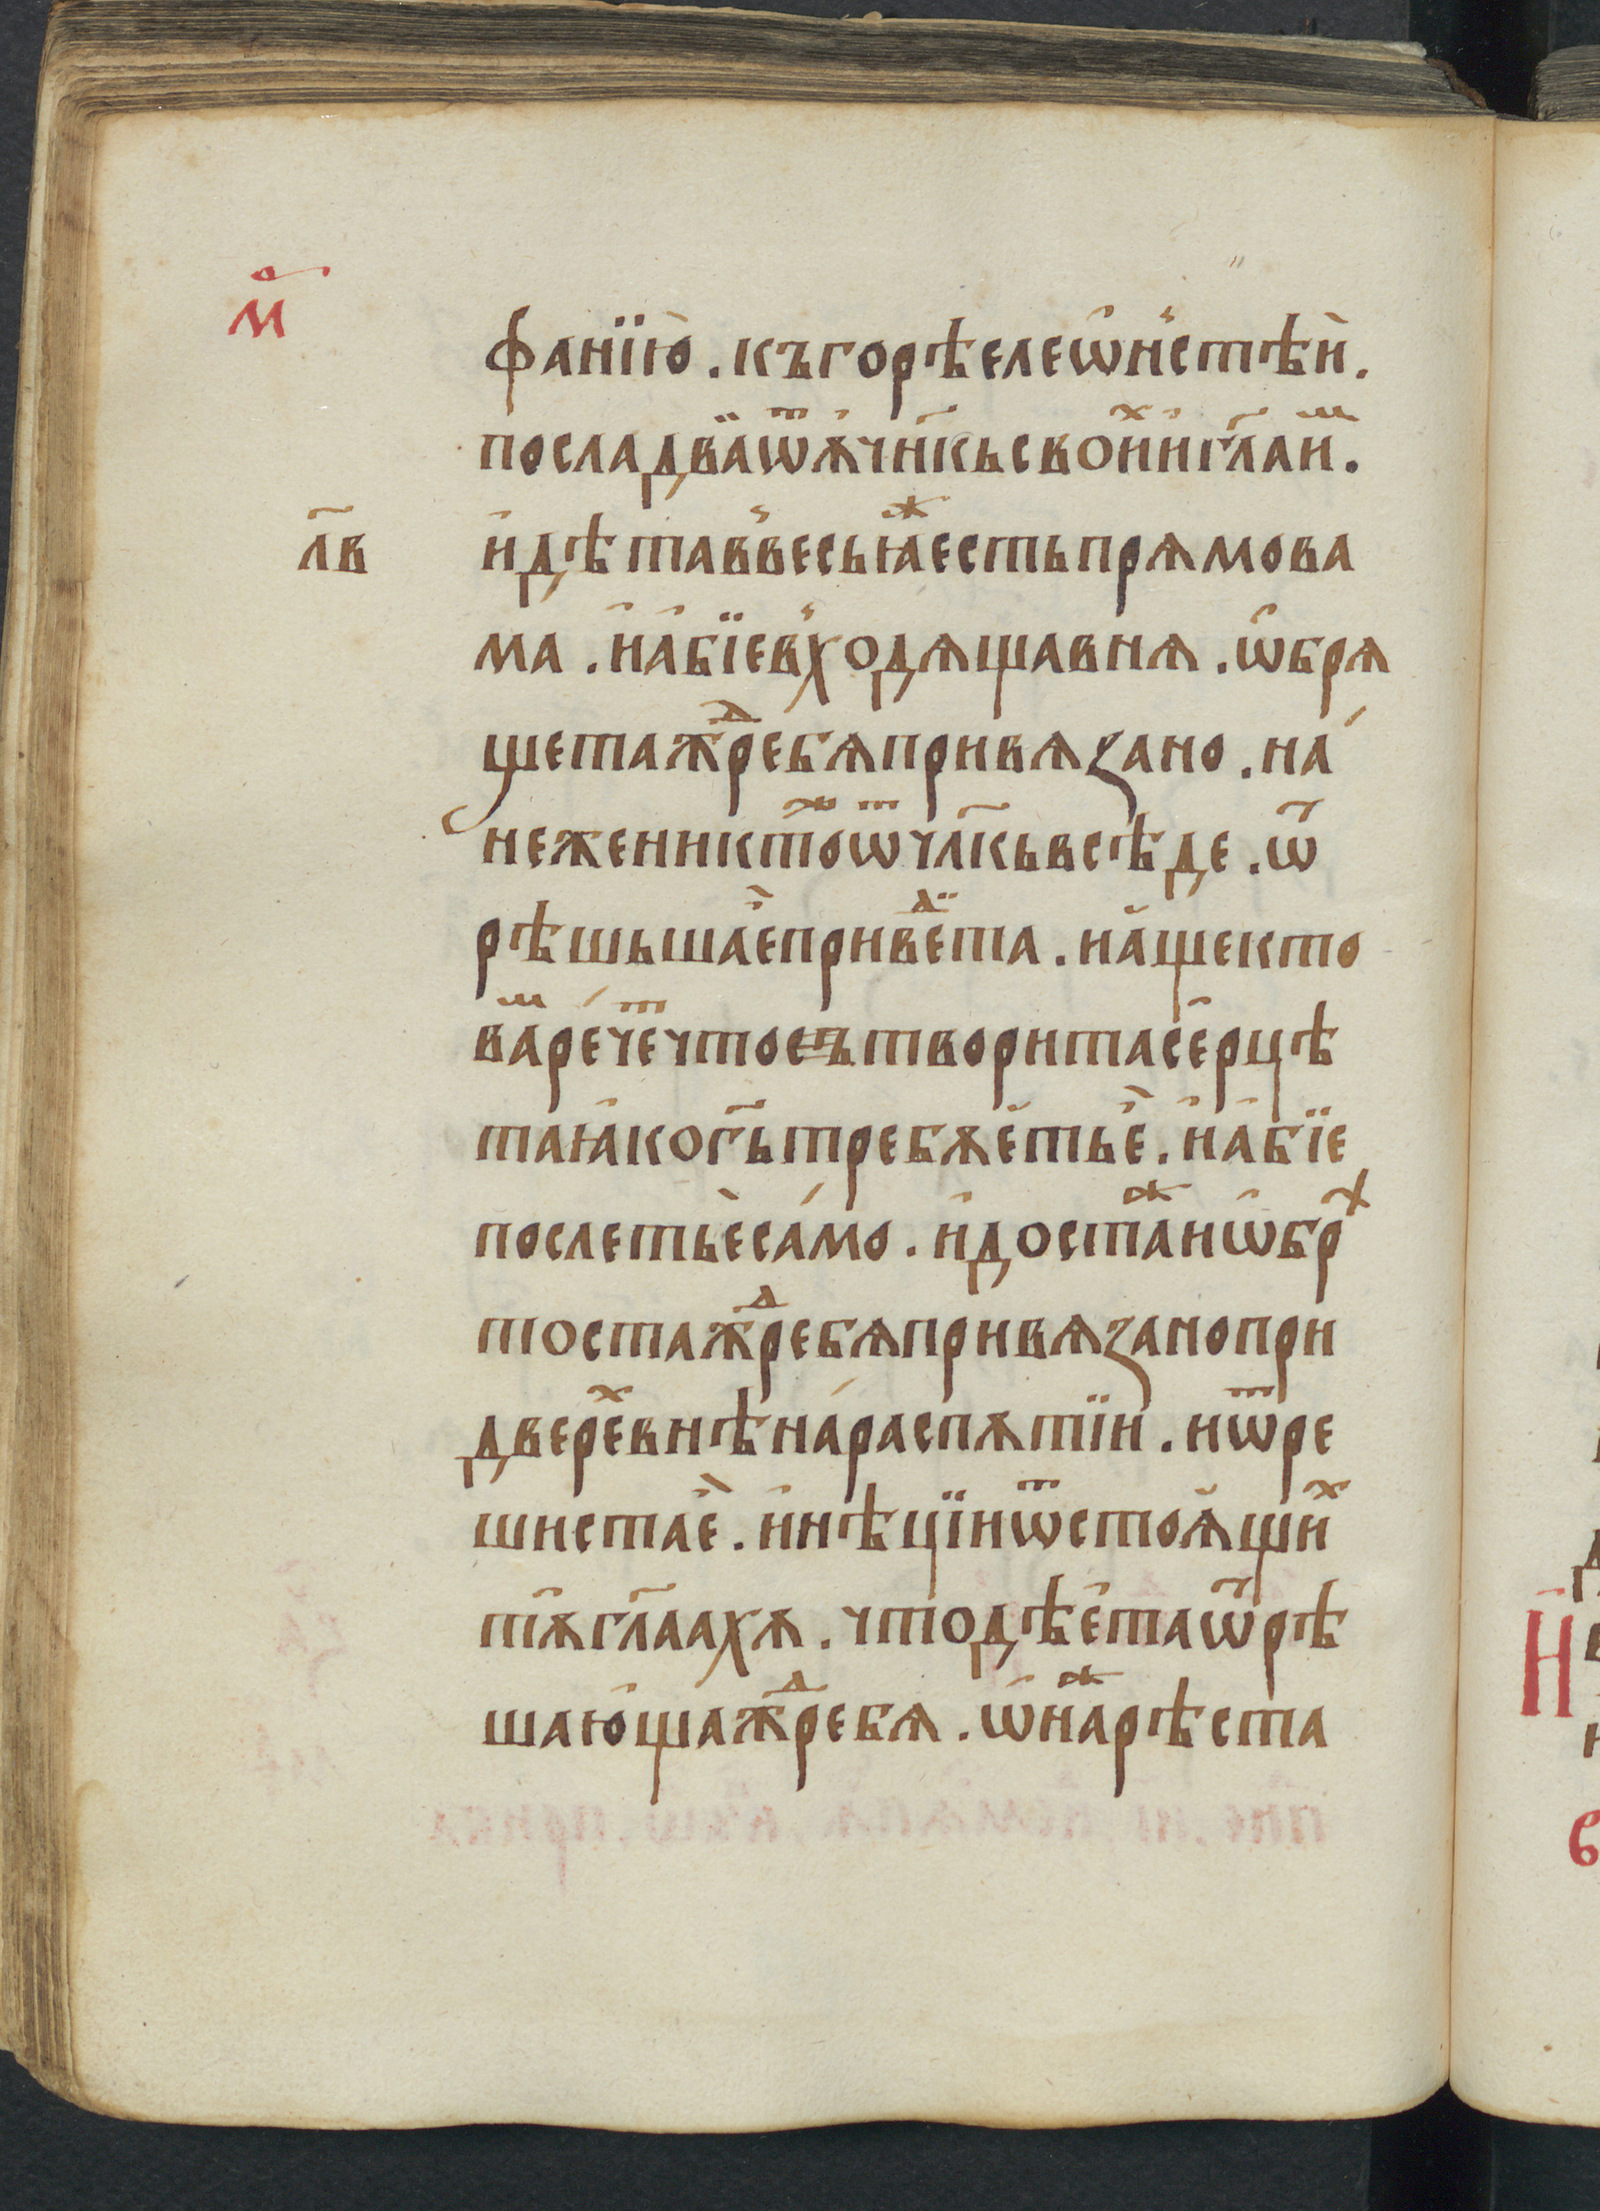 м҃
фанїꙗ̀ю . къгорѣелеѡ҆нⷭ҇стѣи҆ .
посладва̏ѿꙋ҆чн҃кьсвои҆ⷯи҆гл҃аиⷨ .
л҃в
и҆дѣтав̾весьꙗ҆ⷤестьпрѧмова
ма . и҆а҆бїев̾ходѧщавнѧ . ѡ҆брѧ
щетажⷣребѧпривѧꙁано . на́
неженикто́ⷤѿчл҃кьвсѣде . ѿ
рѣшьшае҆̀приведⷣѐта . иа҆щекто
ваⷨре́четⷮчтосътворитасе҆рцѣ
таꙗ҆ког҃ьтребꙋе҆тье҆̀ . и҆а҆бїе
послетье҆̀са́мо . и҆достⷤаиѡ҆брⷯ
тостажⷣребѧпривѧꙁанопри
двереⷯвнѣна́распѫтїи . иѿре
шистае҆̀ . и҆нѣцїиѿстоѧ҆щиⷯ
тꙋ҆гл҃аахѫ . чтодѣе҆таѿрѣ
шаю҆щажⷣребѧ . ѡ҆наⷤрѣста